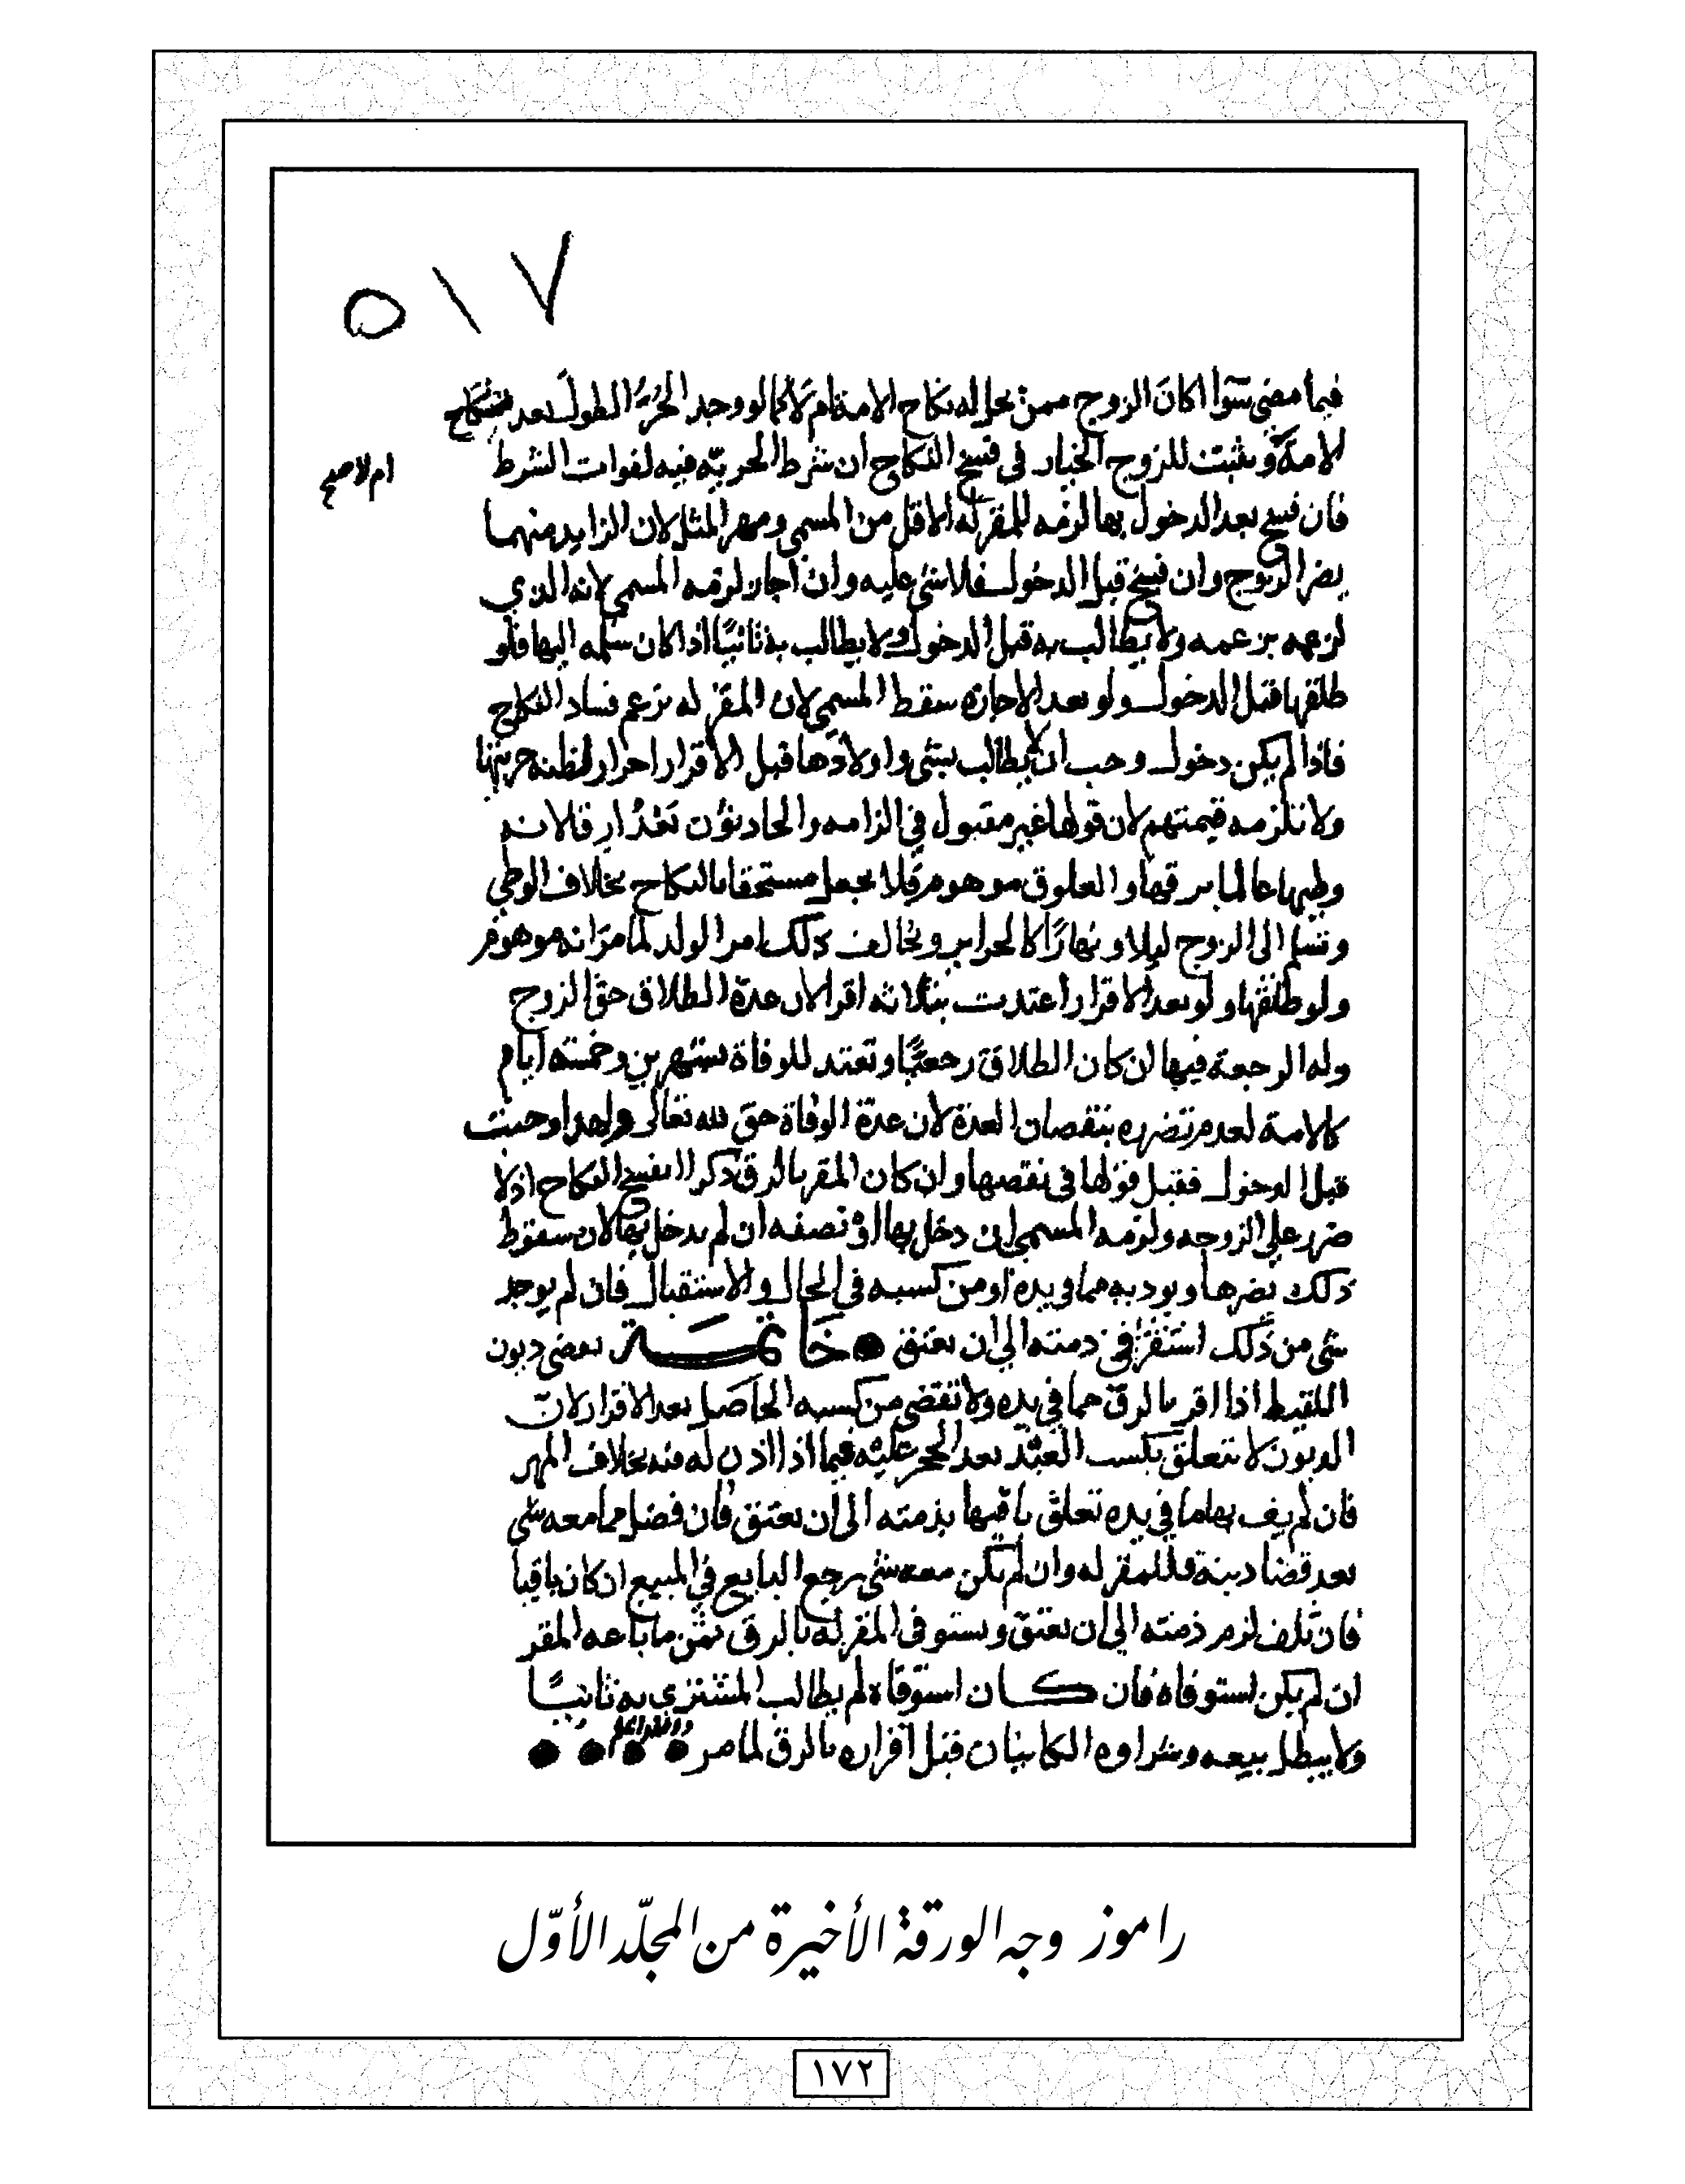 ٥١٧
فيما مضى سوا اكان الزوج ممن يحل له نكاح الامة ام لا كما لو وجد الحر الطول بعد نكاح
الامة ويثبت للزوج الخيار في فسخ النكاح ان شرط الحرية فيه لفوات الشرط
ام لا صح
فان فسخ بعد الدخول بها لزمه للمقر له الاقل من المسمى ومهر المثل لان الزايد منهما
يضر الزوج وان فسخ قبل الدخول فلا شي عليه وان اجاز لزمه المسمى لانه الذي
لزمه بزعمه ولا يطالب به قبل الدخول ولا يطالب به ثانيًا اذا كان سلمه اليها فلو
طلقها قبل الدخول ولو بعد الاجازة سقط المسمى لان المقر له يزعم فساد النكاح
فاذا لم يكن دخول وجب ان لا يطالب بشي واولادها قبل الاقرار احرار لظنه حريتها
ولا تلزمه قيمتهم لان قولها غير مقبول في الزامه والحادثون بعد ارقا لانه
وطيها عالما برقها والعلوق موهوم فلا يجعل مستحقا بالنكاح بخلاف الوطي
وتسلم الى الزوج ليلا ونهارًا كالحراير ويخالف ذلك امر الولد لما مر انه موهوم
ولو طلقها ولو بعد الاقرار اعتدت بثلاثة اقرا لان عدة الطلاق حق الزوج
وله الرجعة فيها ان كان الطلاق رجعيًا وتعتد للوفاة بشهرين وخمسة ايام
كالامة لعدم تضرره بنقصان العدة لان عدة الوفاة حق لله تعالى ولهذا وجبت
قبل الدخول فقبل قولها في نقصها وان كان المقر بالرق ذكرا انفسخ النكاح اذ لا
ضرر على الزوجه ولزمه المسمى ان دخل بها او نصفه ان لم يدخل بها لان سقوط
ذلك يضرها ويوديه مما في يده او من كسبه في الحال والاستقبال فان لم يوجد
شي من ذلك استقر في ذمته الى ان يعتق خاتمة تقضى ديون
اللقيط اذا اقر بالرق مما في يده ولا تقضى من كسبه الحاصل بعد الاقرار لان
الديون لا تتعلق بكسب العبد بعد الحجر عليه فيما اذا اذن له فيه بخلاف المهر
فان لم يف بها ما في يده تعلق باقيها بذمته الى ان يعتق فان فضل مما معه شي
بعد قضا دينه فللمقر له وان لم يكن معه شي رجع البايع في المبيع ان كان باقيا
فان تلف لزم ذمته الى ان يعتق ويستوفي المقر له بالرق ثمن ما باعه المقر
ان لم يكن استوفاه فان كان استوفاه لم يطالب المشتري به ثانيًا
ولا يبطل بيعه وشراوه الكاينان قبل اقراره بالرق لما مر
راموز وجه الورقة الأخيرة من المجلّد الأوّل
١٧٢